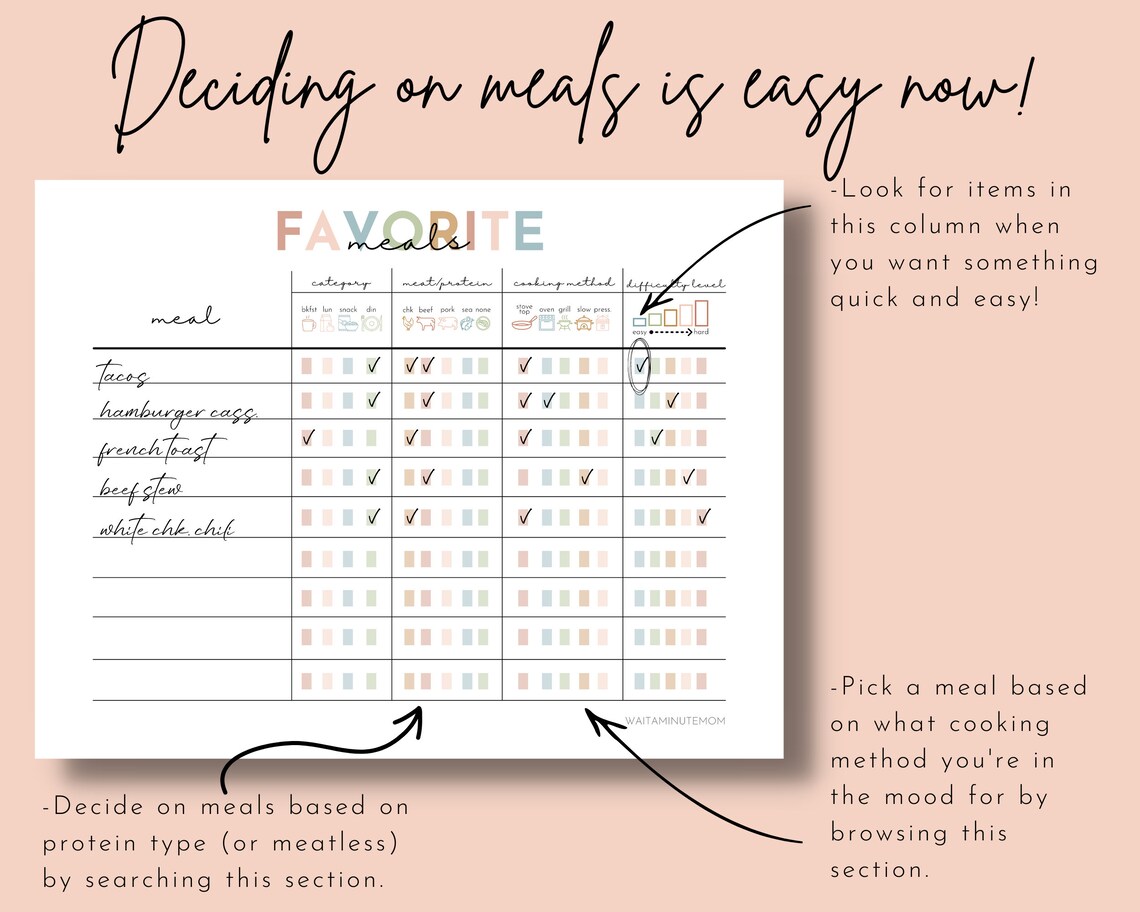 Deciding on meals is easy now!
-Look for items in
this column when
you want something
quick and easy!
FAVORITE
meals
category meat/protein cooking method difficulty level
meal
bkfst lun snack din chk beef pork sea none stove top oven grill slow press.
easy hard
tacos
hamburger cass.
french toast
beef stew
white chk. chili
WAITAMINUTEMOM
-Pick a meal based
on what cooking
method you're in
the mood for by
browsing this
section.
-Decide on meals based on
protein type (or meatless)
by searching this section.